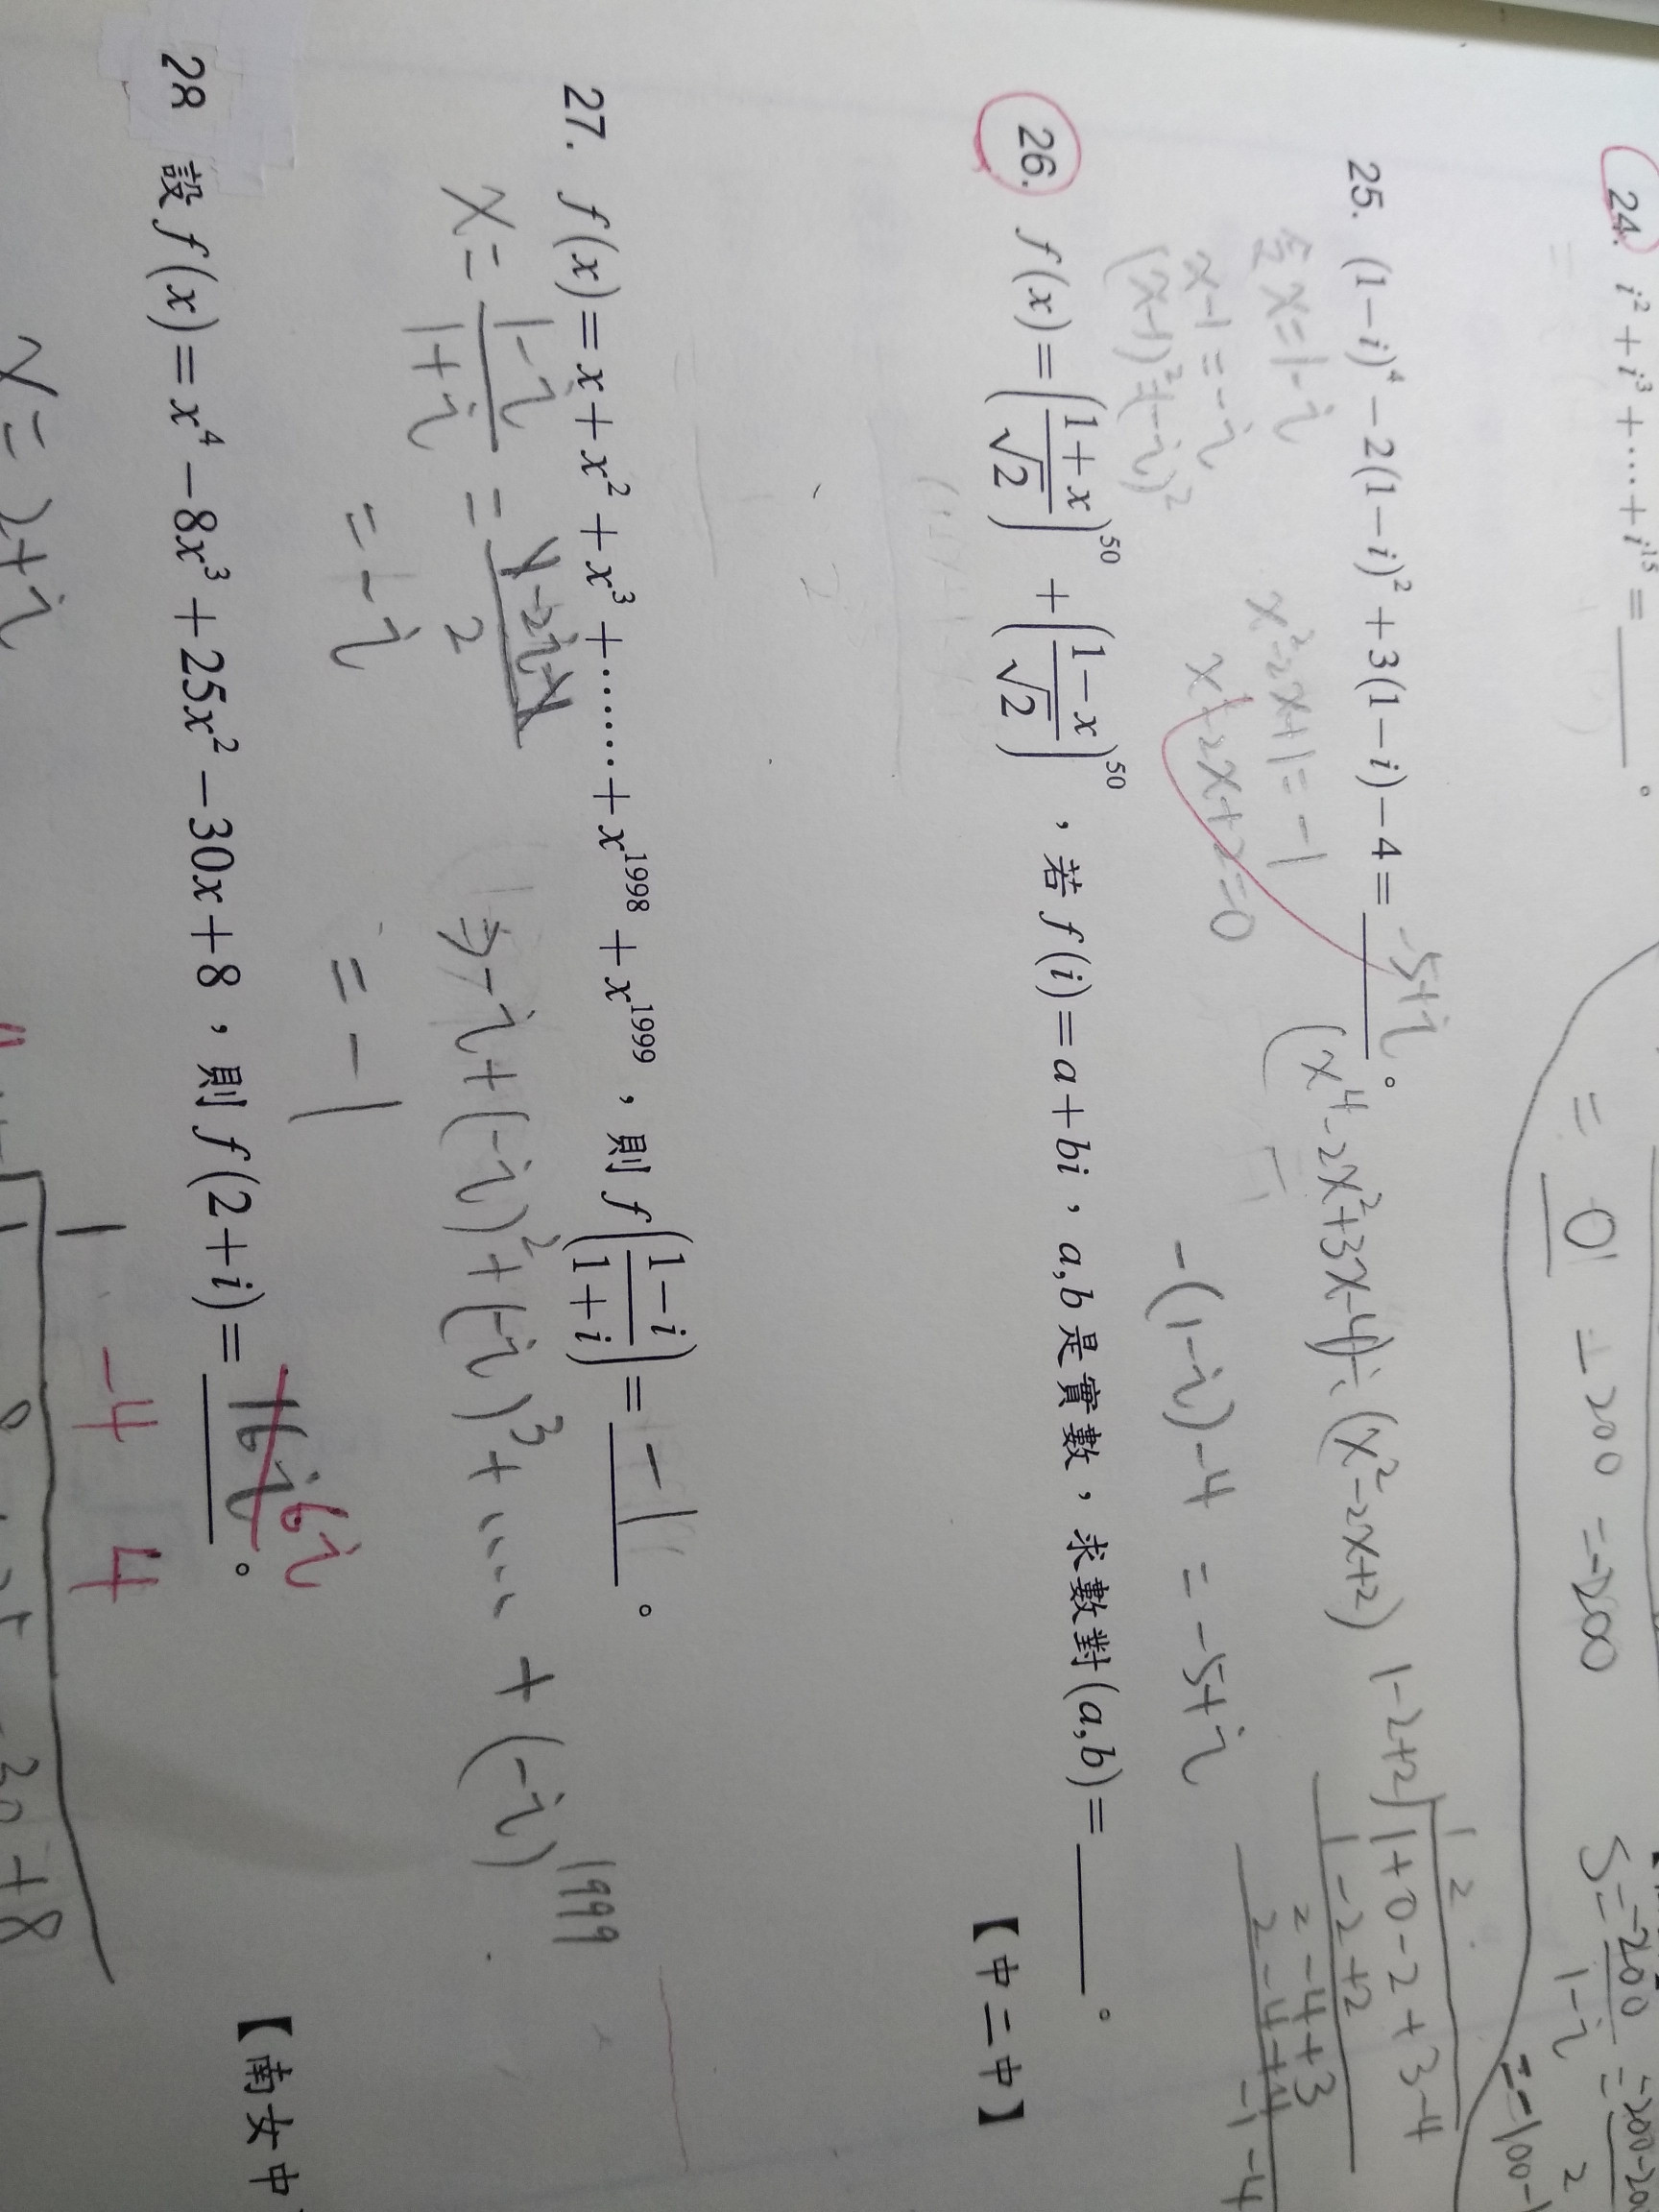 24. i² + i³ + … + i¹⁵ = ______ 。
= 0 
⊥ 200 = -200
S = -200/(1-i) = 
25. (1-i)⁴ - 2(1-i)² + 3(1-i) - 4 = -5+i 。
令 x = 1-i
x-1 = -i
(x-1)² = (-i)²
x²-2x+1 = -1
x²-2x+2=0
(x⁴-2x²+3x-4) ÷ (x²-2x+2)
1-2+2 | 1+0-2+3-4
1 2
1-2+2
2-4+3
2-4+4
-1-4
-(1-i)-4 = -5+i
26. f(x) = ((1+x)/√2)⁵⁰ + ((1-x)/√2)⁵⁰ ,若 f(i) = a+bi,a,b是實數,求數對(a,b) = ______ 。
【中二中】
27. f(x) = x + x² + x³ + …… + x¹⁹⁹⁸ + x¹⁹⁹⁹ ,則 f((1-i)/(1+i)) = -1 。
x = (1-i)/(1+i) = (1-2i-1)/2
= -i
⇒ -i + (-i)² + (-i)³ + …. + (-i)¹⁹⁹⁹
= -1
28 設 f(x) = x⁴ - 8x³ + 25x² - 30x + 8 ,則 f(2+i) = 16i 6i 。
【南女中
x = 2+i
1 -4 4